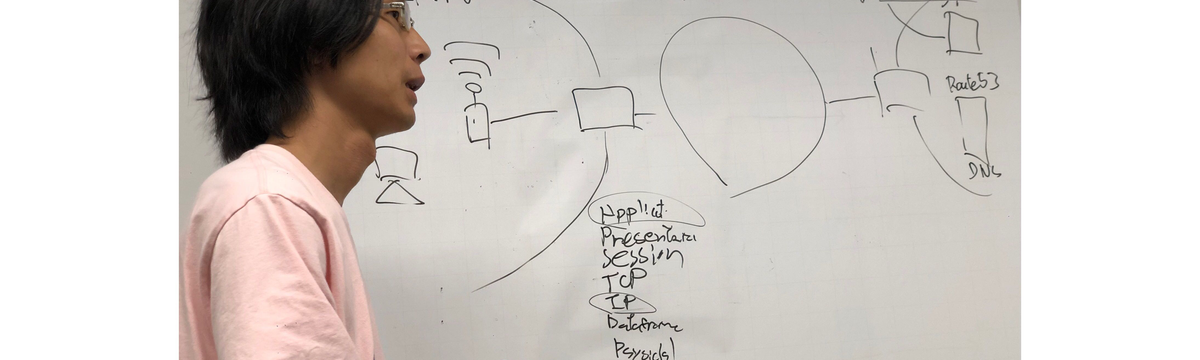 Route53
DNS
Applicat.
Presentatai
Session
TCP
IP
Dataframe
Psysidal